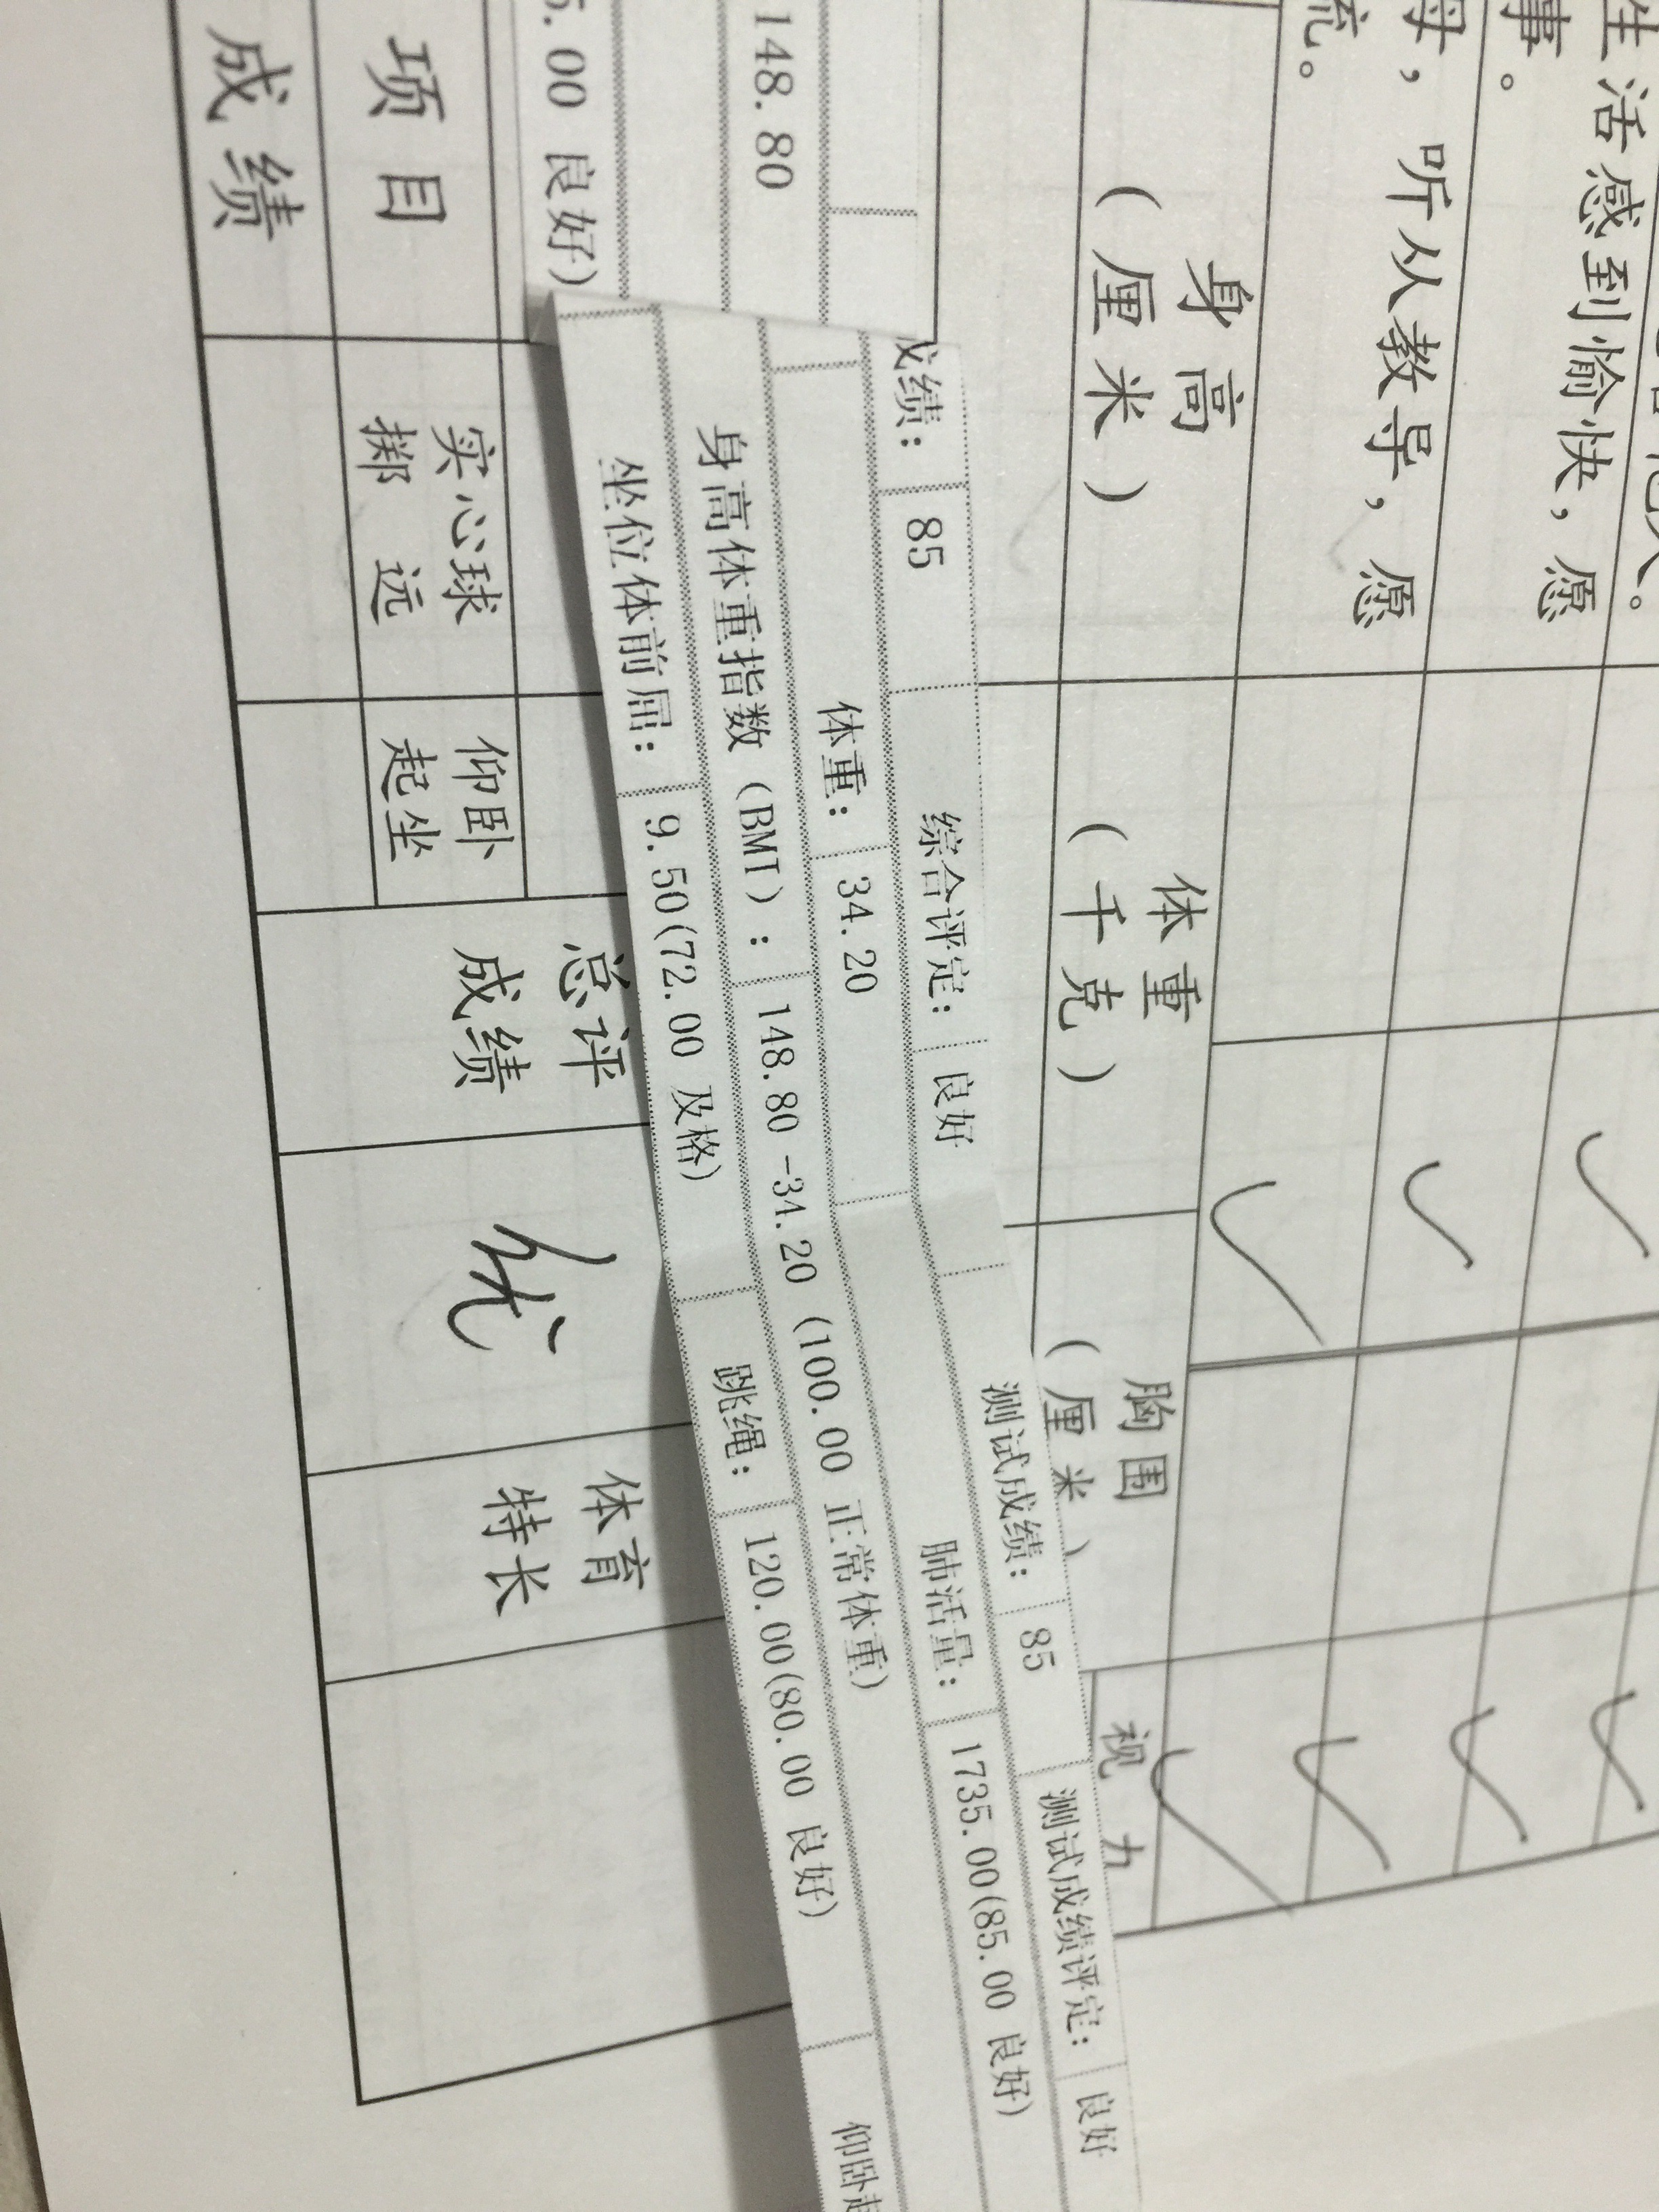 生活感到愉快，愿
事。
母，听从教导，愿
流。
身高
（厘米）
体重
（千克）
胸围
（厘米）
视力
成绩： 85 综合评定： 良好 测试成绩： 85 测试成绩评定： 良好
148.80 体重： 34.20 肺活量： 1735.00(85.00 良好)
身高体重指数（BMI）： 148.80 -34.20 (100.00 正常体重)
5.00 良好) 坐位体前屈： 9.50(72.00 及格) 跳绳： 120.00(80.00 良好) 仰卧起
项目
实心球
掷 远
仰卧
起坐
总评
成绩
优
体育
特长
成绩